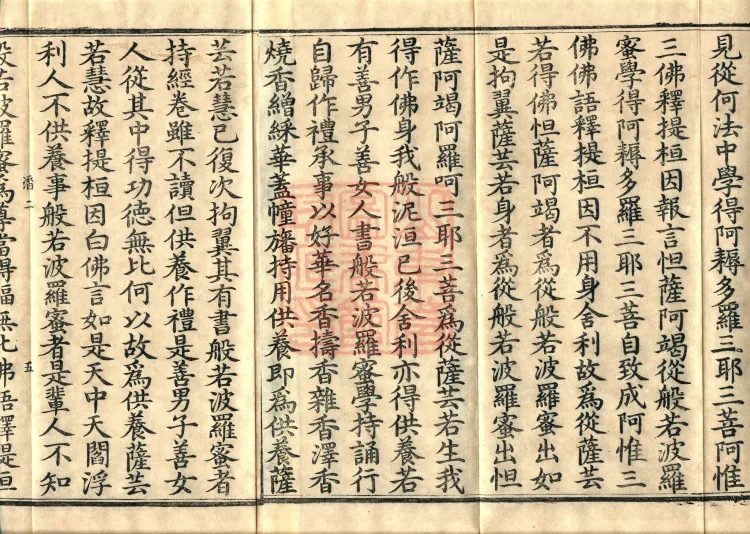 見從何法中學得阿耨多羅三耶三菩阿惟
三佛釋提桓因報言怛薩阿竭從般若波羅
蜜學得阿耨多羅三耶三菩自致成阿惟三
佛佛語釋提桓因不用身舍利故爲從薩芸
若得佛怛薩阿竭者爲從般若波羅蜜出如
是拘翼薩芸若身者爲從般若波羅蜜出怛
薩阿竭阿羅呵三耶三菩爲從薩芸若生我
得作佛身我般泥洹已後舍利亦得供養若
有善男子善女人書般若波羅蜜學持誦行
自歸作禮承事以好華名香擣香雜香澤香
燒香繒綵華蓋幢旛持用供養即爲供養薩
芸若慧已復次拘翼其有書般若波羅蜜者
持經卷雖不讀但供養作禮是善男子善女
人從其中得功德無比何以故爲供養薩芸
若慧故釋提桓因白佛言如是天中天閻浮
利人不供養事般若波羅蜜者是輩人不知
二 五
般若波羅蜜爲尊當得福無比佛語釋提桓